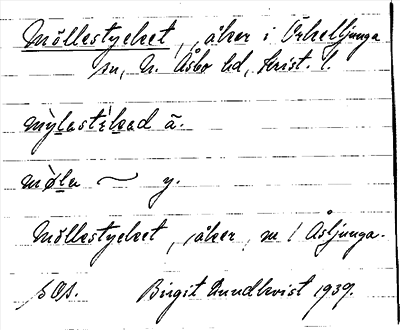 Möllestycket, åker i Örkelljunga
sn, N. Åsbo hd, Krist. l.
mỳlastikad ä.
mø̀la ~ y.
Möllestycket, åker, m l Åsljunga.
SOS. Birgit Lundkvist 1939.